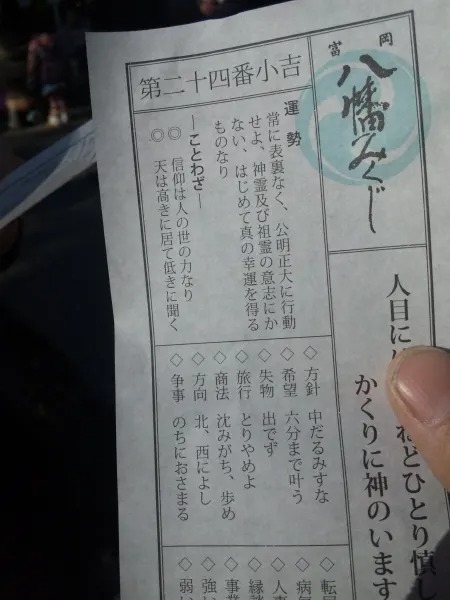 富岡
八幡みくじ
人目に
ねどひとり慎し
かくりに神のいます
第二十四番小吉
運勢
常に表裏なく、公明正大に行動
せよ、神霊及び祖霊の意志にか
ない、はじめて真の幸運を得る
ものなり
―ことわざ―
◎ 信仰は人の世の力なり
◎ 天は高きに居て低きに聞く
◇ 方針 中だるみすな
◇ 希望 六分まで叶う
◇ 失物 出でず
◇ 旅行 とりやめよ
◇ 商法 沈みがち、歩め
◇ 方向 北、西によし
◇ 争事 のちにおさまる
◇ 転居
◇ 病気
◇ 人事
◇ 縁談
◇ 事業
◇ 強い
◇ 弱い